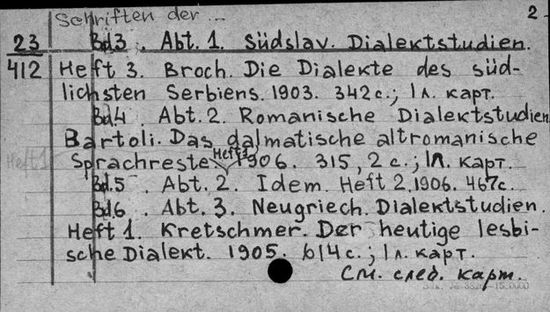 Schriften der ... 2
23 Bd3. Abt. 1. Südslav. Dialektstudien.
412 Heft 3. Broch. Die Dialekte des süd-
lichsten Serbiens. 1903. 342 с.; 1 л. карт.
Bd4. Abt. 2. Romanische Dialektstudien
Bartoli. Das dalmatische altromanische
Heft 1
Sprachreste 1906. 315, 2 с.; 1 л. карт.
Bd.5. Abt. 2. Idem. Heft 2. 1906. 467 с.
Bd6. Abt. 3. Neugriech. Dialektstudien.
Heft 1. Kretschmer. Der heutige lesbi-
sche Dialekt. 1905. 614 с.; 1 л. карт.
См. след. карт.